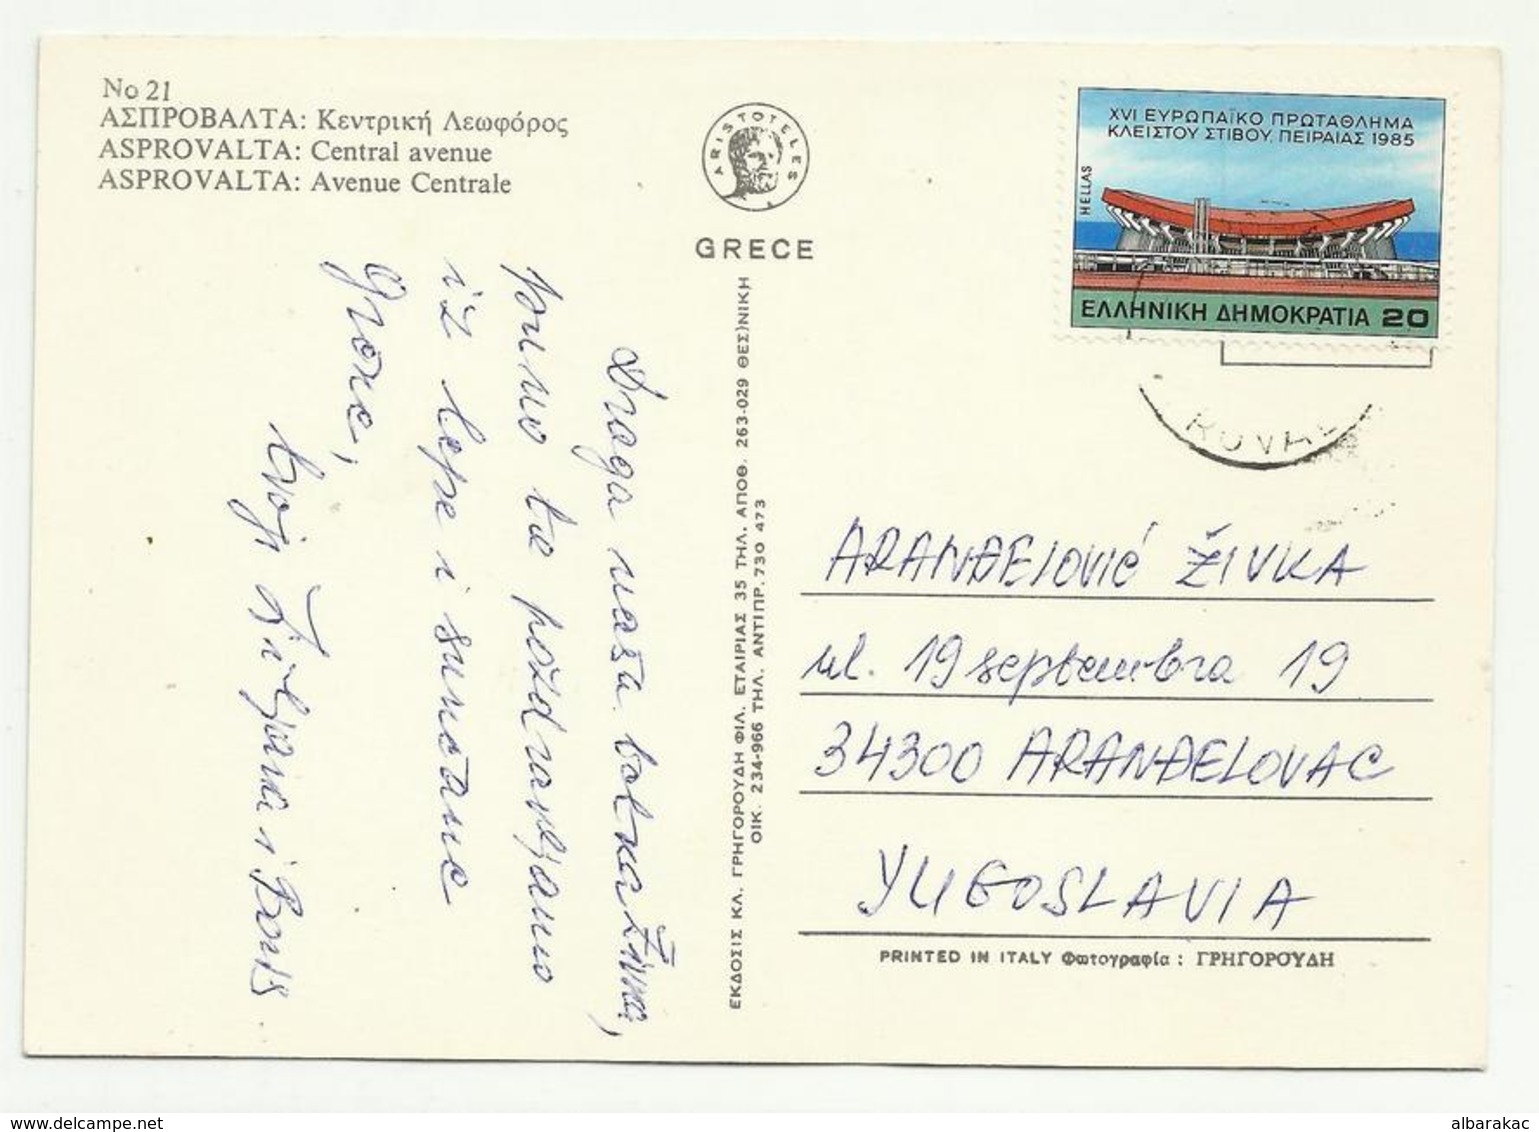 No 21
ΑΣΠΡΟΒΑΛΤΑ: Κεντρική Λεωφόρος
ASPROVALTA: Central avenue
ASPROVALTA: Avenue Centrale
ARISTOTELES
GRECE
XVI ΕΥΡΩΠΑΪΚΟ ΠΡΩΤΑΘΛΗΜΑ
ΚΛΕΙΣΤΟΥ ΣΤΙΒΟΥ, ΠΕΙΡΑΙΑΣ 1985
HELLAS
ΕΛΛΗΝΙΚΗ ΔΗΜΟΚΡΑΤΙΑ 20
ROVAL
Draga naša
puno te pozdravljamo
iz lepe i sunčane
Grčke,
tvoji Ziljana i Boris
ΕΚΔΟΣΙΣ ΚΛ. ΓΡΗΓΟΡΟΥΔΗ ΦΙΛ. ΕΤΑΙΡΙΑΣ 35 ΤΗΛ. ΑΠΟΘ. 263-029 ΘΕΣ)ΝΙΚΗ
ΟΙΚ. 234-966 ΤΗΛ. ΑΝΤΙΠΡ. 730 473
ARANĐELOVIĆ ŽIVKA
ul. 19 septembra 19
34300 ARANĐELOVAC
YUGOSLAVIA
PRINTED IN ITALY Φωτογραφία : ΓΡΗΓΟΡΟΥΔΗ
albarakac su www.delcampe.net